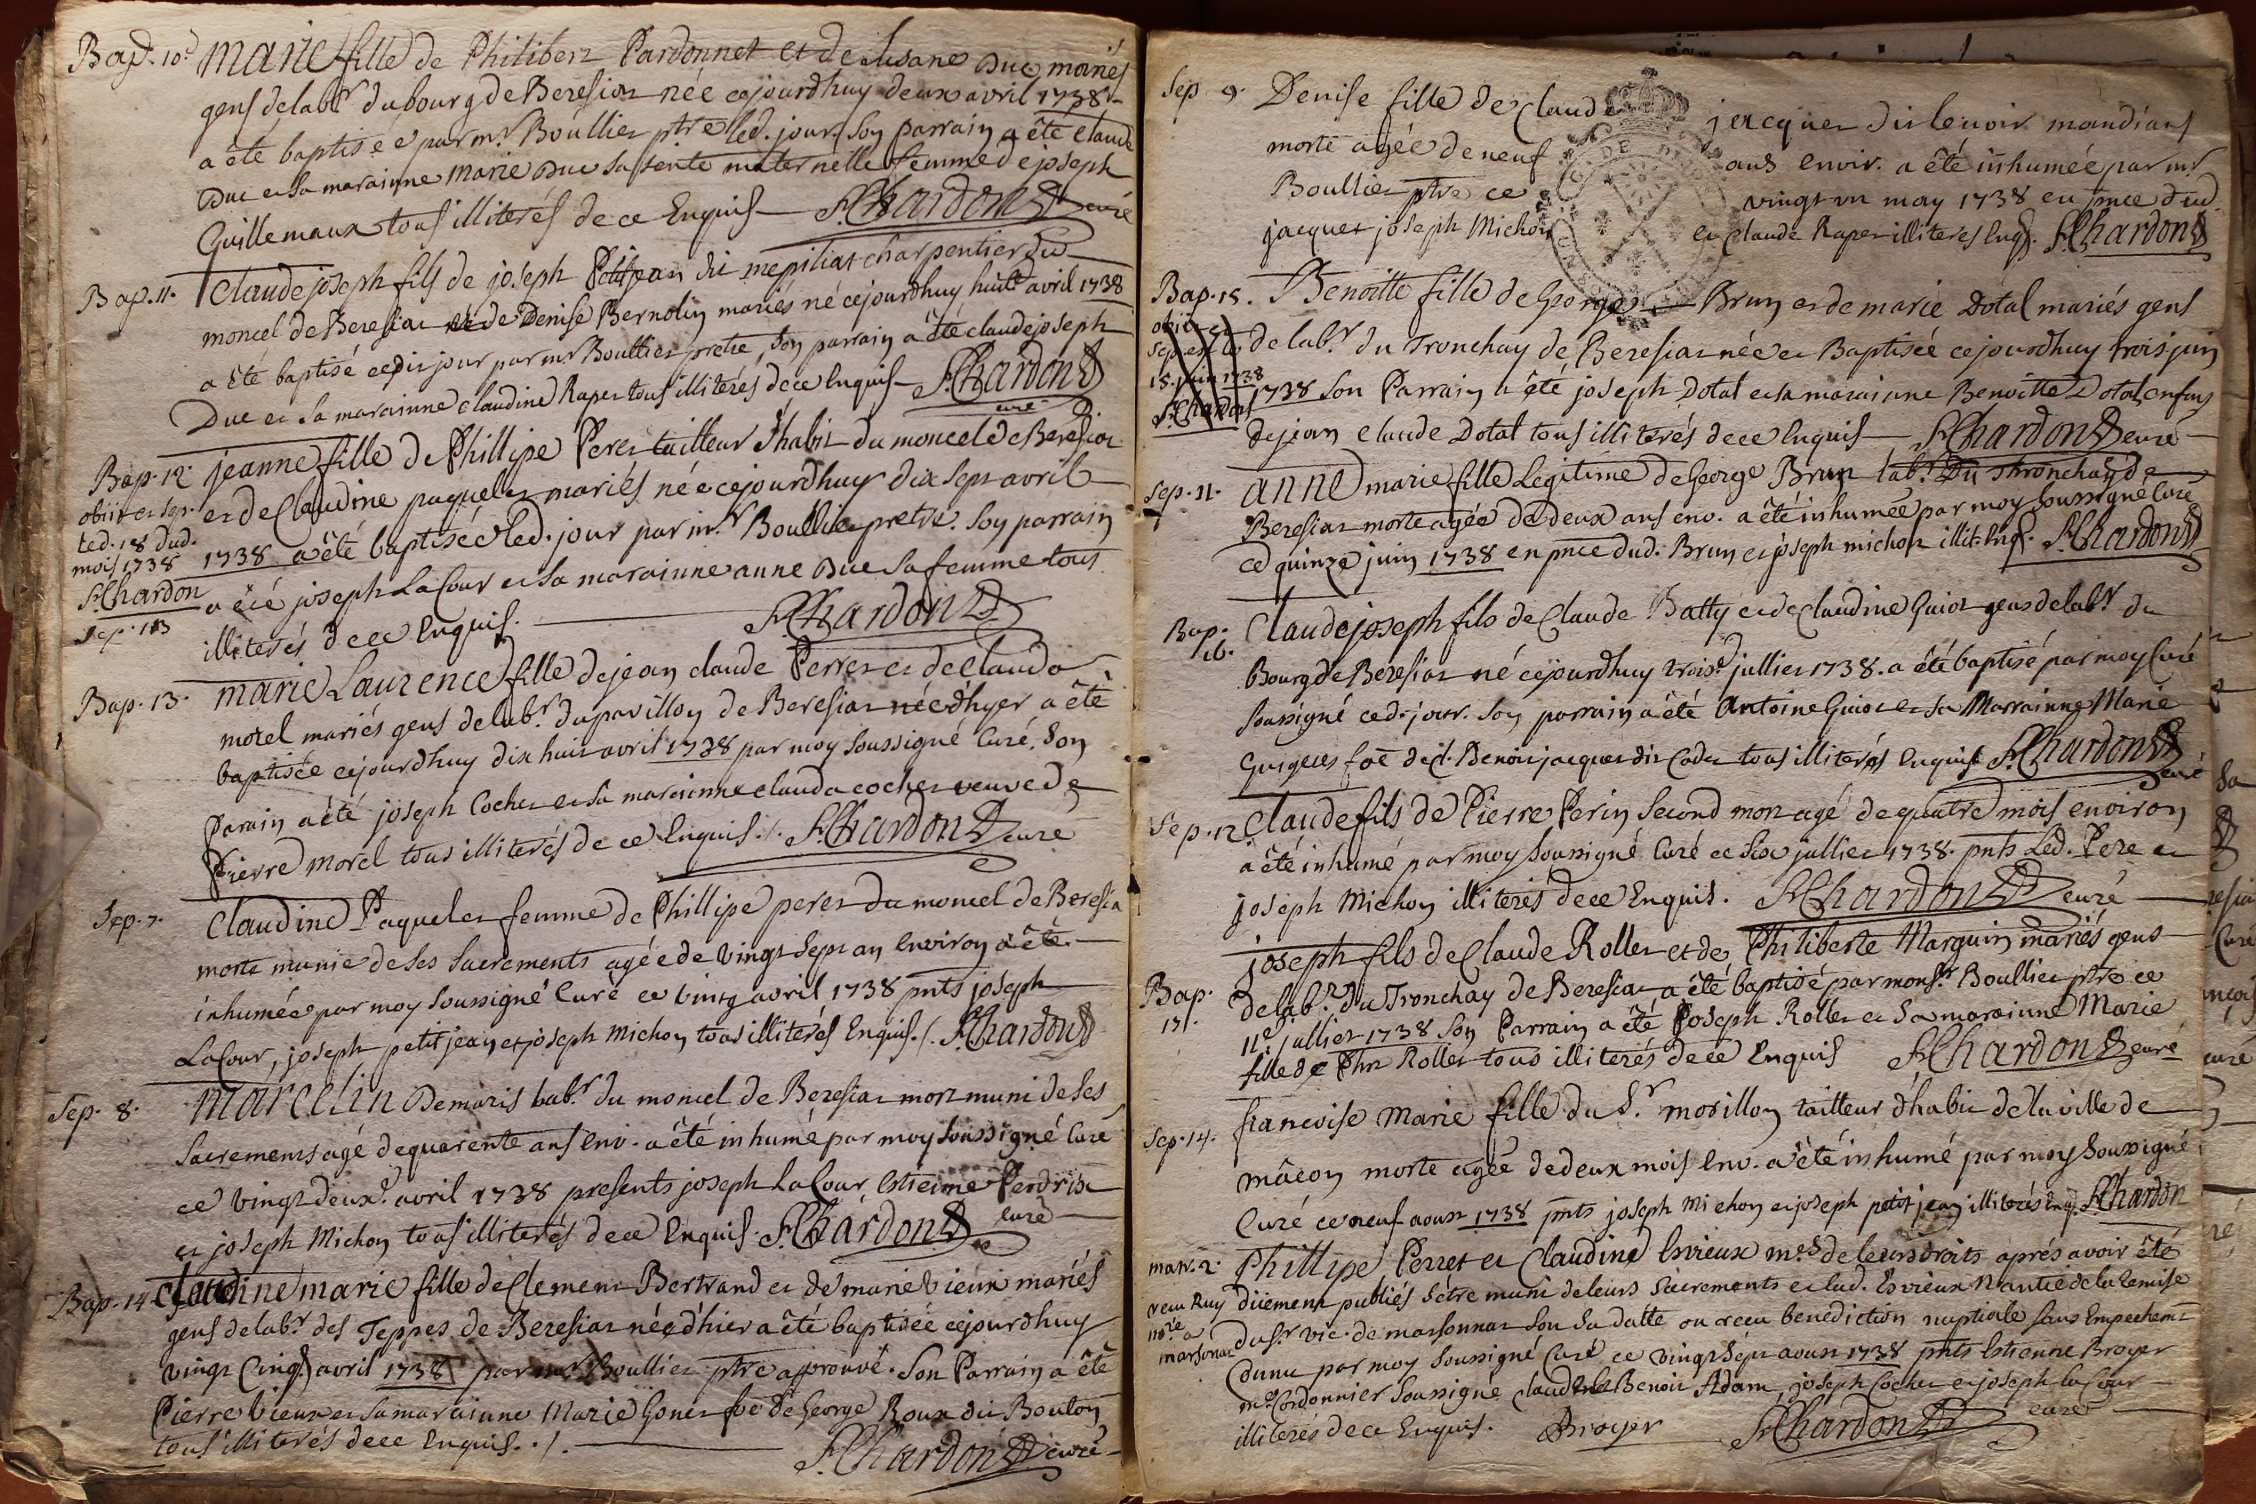 Bap. 10e Marie fille de Philibert Pardonnet et de Susane Duc mariés
gens de labr du bourg de Beresiat née cejourdhuy deux avril 1738
a été baptisée par mr Boullier ptre led. jour, son parrain a été claude
Duc et sa marainne Marie Duc sa tente maternelle femme de joseph
Guillemaux tous illiterés de ce Enquis St Chardon curé
Bap. 11. Claude joseph fils de joseph Petitjean dit mepiliat charpentier du
moncel de Beresiat et de Denise Bernolin mariés né cejourdhuy huit avril 1738
a été baptisé cedit jour par mr Boullier pretre, son parrain a été claude joseph
Duc et sa marainne claudine Rapet tous illiterés de ce Enquis St Chardon
curé
Bap. 12. jeanne fille de Phillipe Peret tailleur d'habit du moncel de Beresiat
obiit et sep. et de Claudine paquelet mariés née cejourdhuy dix sept avril
led. 18 dud. 1738 a été baptisée led. jour par mr Boullier pretre. Son parrain
mois 1738
St Chardon a été joseph LaCour et sa marainne anne Duc sa femme tous
Sep. illiterés de ce Enquis. St Chardon
Bap. 13. Marie Laurence fille de jean claude Perret et de Clauda
morel mariés gens de labr du pavillon de Beresiat née dhyer a été
baptisée cejourdhuy dix huit avril 1738 par moy soussigné Curé. Son
Parain a été joseph Cochet et sa marainne clauda cochet veuve de
Pierre Morel tous illiterés de ce Enquis ./. St Chardon curé
Sep. 7. Claudine Paquelet femme de Phillipe peret du moncel de Beresia
morte munie de ses sacrements agée de vingt sept an environ a été
inhumée par moy soussigné Curé ce vingt avril 1738 pnts joseph
LaCour, joseph petit jean et joseph Michon tous illiterés Enquis ./. St Chardon
Sep. 8. Marcelin Demaris labr du moncel de Beresiat mort muni de ses
sacrements agé de quarente ans env. a été inhumé par moy soussigné Curé
ce vingt deuxe avril 1738 presents joseph LaCour, Estienne Perdrix
et joseph Michon tous illiterés de ce Enquis. St Chardon curé
Bap. 14 Claudine marie fille de Clement Bertrand et de marie Vieux mariés
gens de labr des Teppes de Beresiat née d'hier a été baptisée cejourdhuy
vingt Cinq avril 1738 par mr Boullier ptre approuvé. Son Parrain a été
Pierre Vieux et sa marainne Marie Gonet foe de George Roux du Bouton
tous illiterés de ce Enquis ./. St Chardon curé
Sep 9. Denise fille de Claude jacques dit lenoir mandiant
morte agée de neuf ans envir. a été inhumée par mr
Boullier ptre ce vingt un may 1738 en pnce dud.
jacques joseph Michon et Claude Rapet illiteres Enq. St Chardon
Bap. 15. Benoitte fille de George Brun et de marie Dotal mariés gens
obiit et
sep. est de labr du Tronchay de Beresiat née et Baptisée cejourdhuy trois juin
15 juin 1738 1738 Son Parrain a été joseph Dotal et sa marainne Benoitte Dotal enfans
St Chardon
de jean claude Dotal tous illiterés de ce Enquis St Chardon curé
Sep. 11. Anne marie fille Legitime de George Brun labr Du Tronchay de
Beresiat morte agée de deux ans env. a été inhumée par moy soussigné Curé
ce quinze juin 1738 en pnce dud. Brun et joseph michon illit. Enq. St Chardon
Bap. 16. Claude joseph fils de Claude Batty et de Claudine Guiot gens de labr du
Bourg de Beresiat né cejourdhuy troise jullier 1738. a été baptisé par moy Curé
soussigné ced. jour. Son parrain a été Antoine Guiot et sa Marrainne Marie
foe de cl. Benoit jacques dit Codet tous illiterés Enquis St Chardon
curé
Sep. 12 Claude fils de Pierre Perin second mort agé de quatre mois environ
a été inhumé par moy soussigné Curé ce six jullier 1738. pnts led. Pere et
joseph Michon illiterés de ce Enquis. St Chardon curé
joseph fils de Claude Rollet et de Philiberte Marguin mariés gens
Bap. 17. de labr du Tronchay de Beresiat a été baptisé par monsr Boullier ptre ce
11e jullier 1738 Son Parrain a été Joseph Rollet et sa marainne Marie
fille de Phrt Rollet tous illiterés de ce Enquis St Chardon curé
Sep. 14. francoise Marie fille du Sr morillon tailleur d'habit de la ville de
mâcon morte agée de deux mois env. a été inhumé par moy soussigné
Curé ce neuf aoust 1738 pnts joseph Michon et joseph petit jean illiterés Enq. St Chardon
mar. 2. Phillipe Perret et Claudine Esvieux mes de leurs droits aprés avoir été
veu Ruy düement publiés s'être muni de leurs sacrements et lad. Esvieux Nantie de la remise
nore a
marsonnat du Sr vic. de marsonnat sou sa datte on receu benediction nuptiale sans Empechemt
Conu par moy soussigné Curé ce vingt sept aoust 1738 pnts Estienne Broyer
me Cordonnier soussigné Benoit Adam, joseph Cochet et joseph la Cour
illiterés de ce Enquis. Broyer St Chardon curé